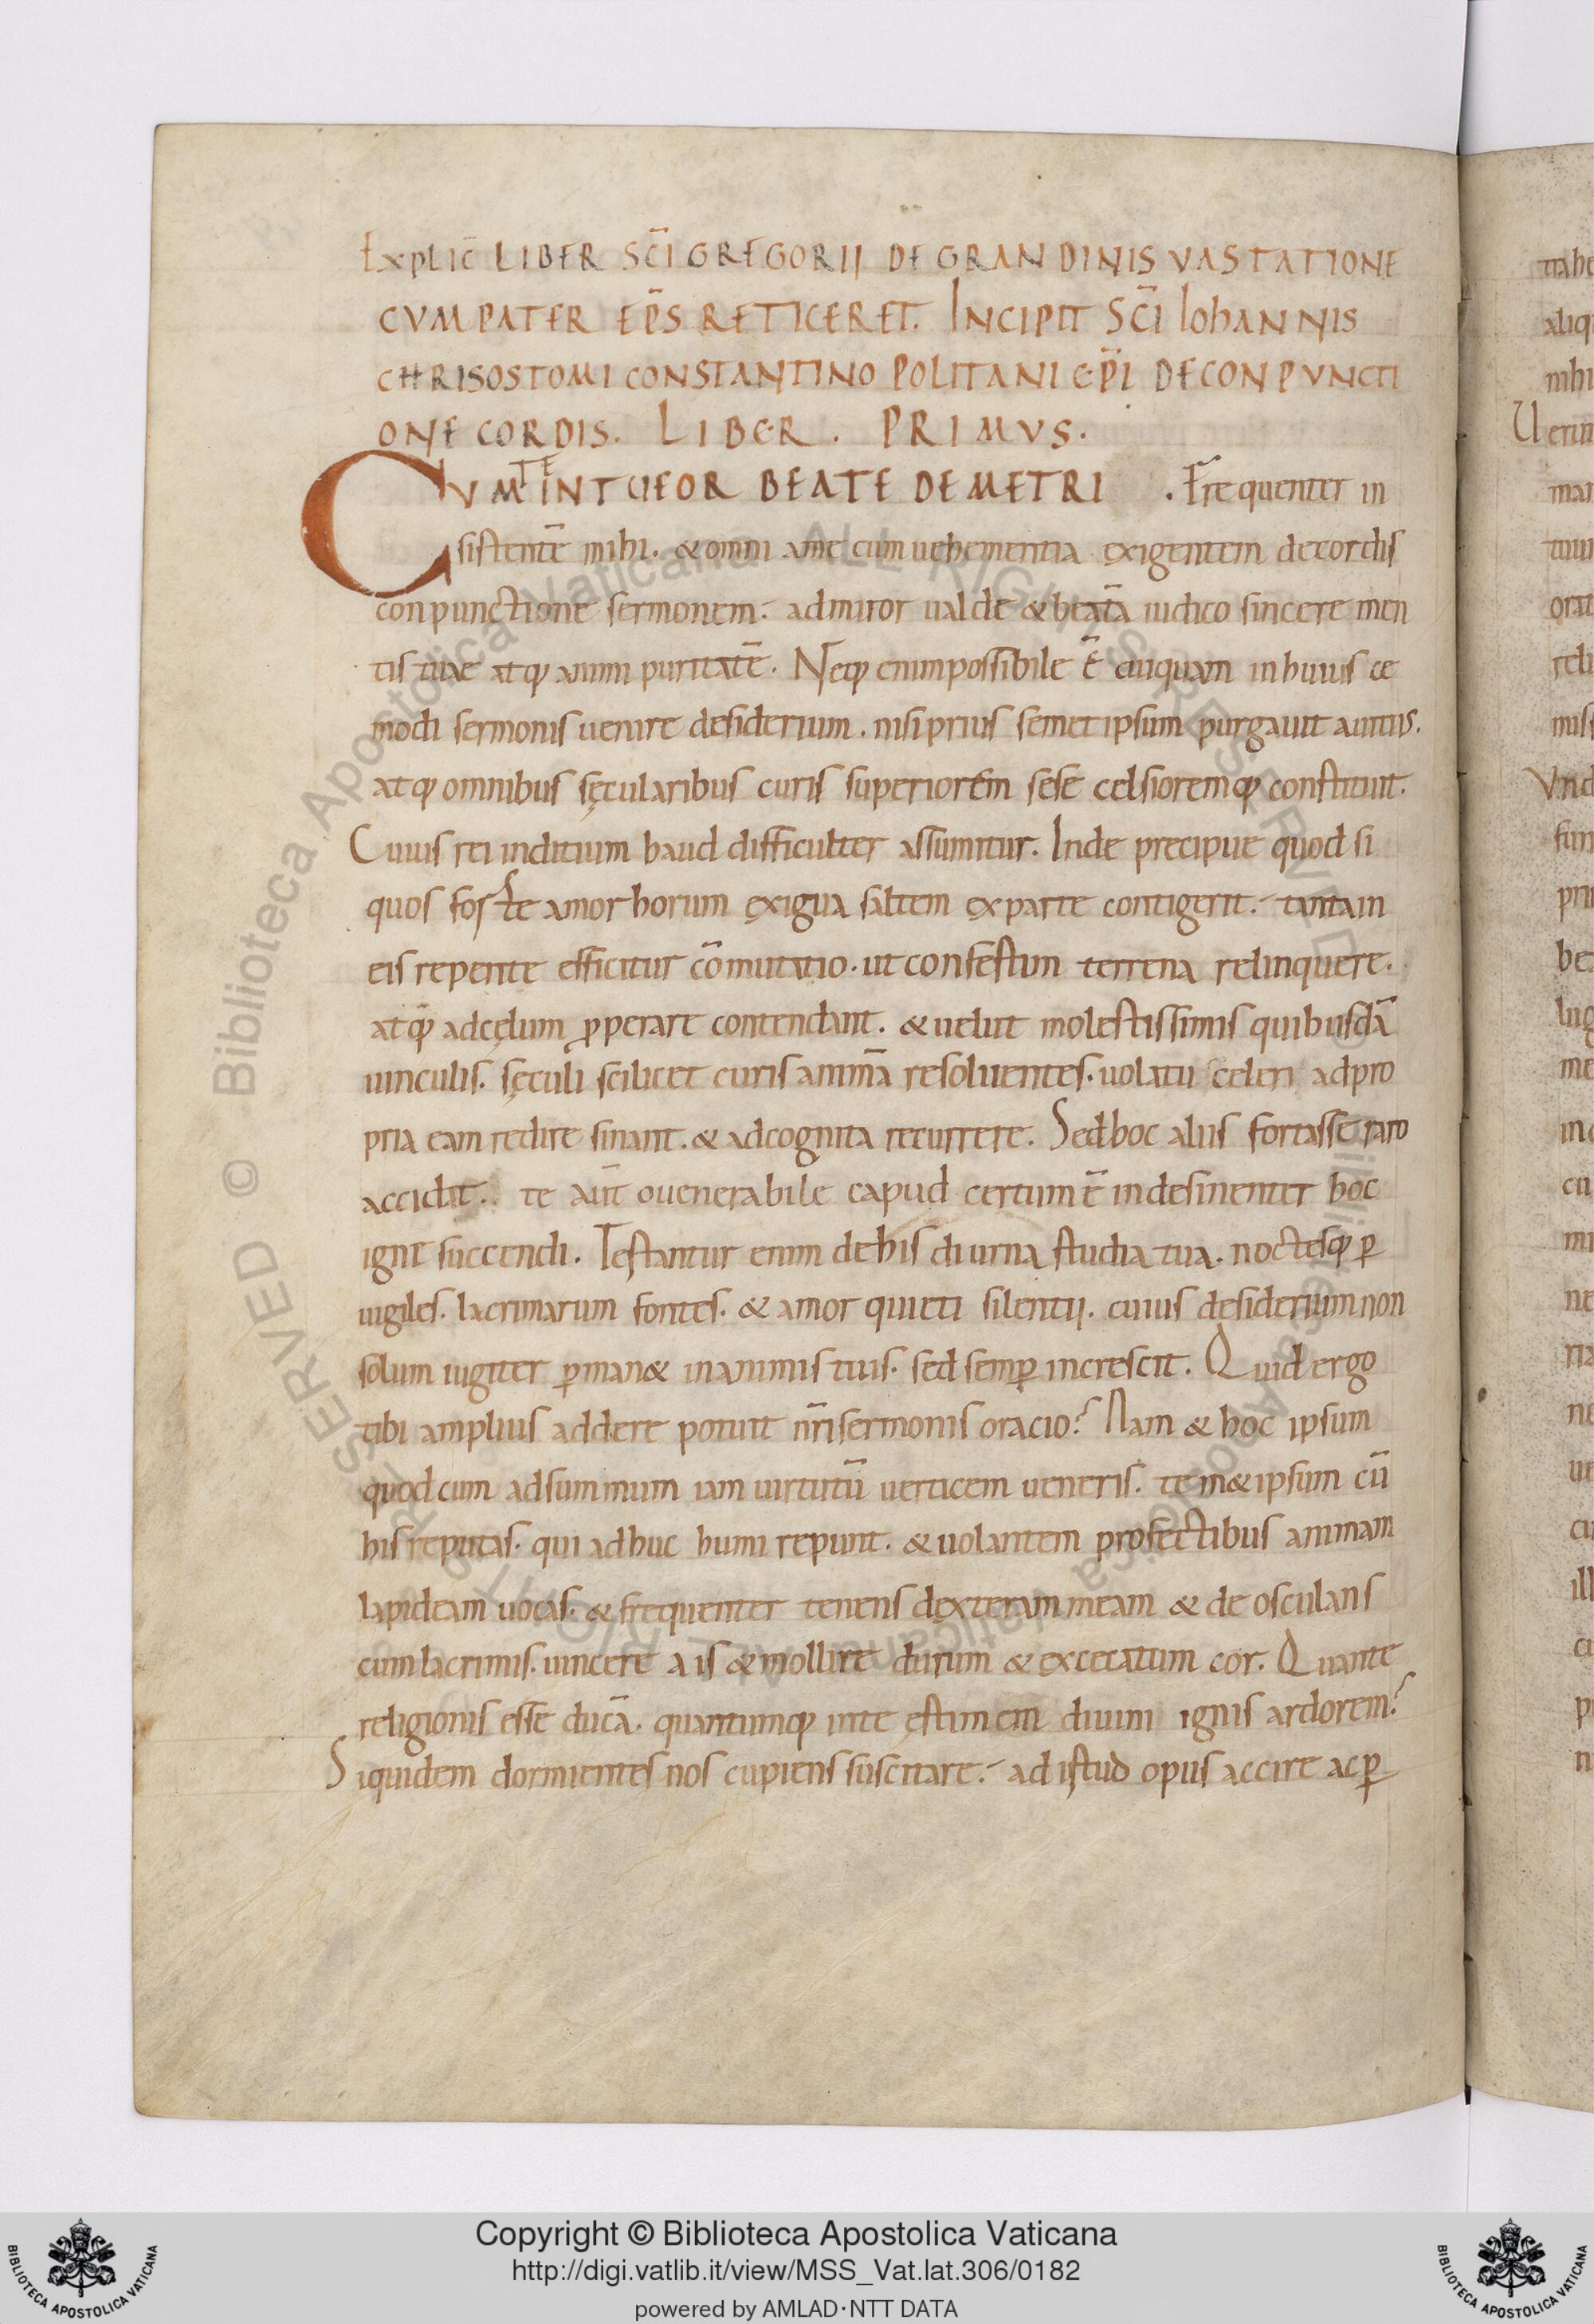 Explic̄ LIBER SC̄I GREGORII DE GRANDINIS VASTATIONE
CVM PATER EP̄S RETICERET. INCIPIT SC̄I IOhANNIS
CHRISOSTOMI CONSTANTINOPOLITANI EP̄I DE CONPVNCTI
ONE CORDIS. LIBER. PRIMVS.
CVM TE INTUEOR BEATE DEMETRI. Frequenter in
sistentē mihi. & omni a me cum uehementia exigentem de cordis
conpunctione sermonem. admiror ualde & beatā iudico sincere men
tis tuae atq; animi puritatē. Neq; enim possibile ē cuiquam in huius ce
modi sermonis uenire desiderium. nisi prius semet ipsum purgauit a uitiis.
atq; omnibus sęcularibus curis superiorem sese celsioremq; constituit.
Cuius rei inditium haud difficulter assumitur. Inde precipue quod si
quos forte amor horum exigua saltem ex parte contigerit. tantam
eis repente efficitur cōmutatio. ut confestim terrena relinquere.
atq; ad cęlum ꝓperare contendant. & uelut molestissimis quibusdā
uinculis. sęculi scilicet curis animā resoluentes. uolatu celeri ad pro
pria eam redire sinant. & ad cognita recurrere. Sed hoc aliis fortasse raro
accidit. te aūt o uenerabile capud certum ē indesinenter hoc
igne succendi. Testantur enim de his diurna studia tua. noctesq; ꝑ
uigiles. lacrimarum fontes. & amor quieti silentii. cuius desiderium non
solum iugiter ꝑman& in animis tuis. sed semꝑ increscit. Quid ergo
tibi amplius addere potuit nr̄i sermonis oracio? Nam & hoc ipsum
quod cum ad summum iam uirtutū uerticem ueneris. tem&ipsum cū
his reputas. qui adhuc humi repunt. & uolantem profectibus animam
lapideam uocas. & frequenter tenens dexteram meam & deosculans
cum lacrimis. uincere ais & mollire durum & excecatum cor. Quante
religionis esse ducā. quantumq; in te ęstimem diuini ignis ardorem?
Siquidem dormientes nos cupiens suscitare. ad istud opus accire ac ꝑ
Copyright © Biblioteca Apostolica Vaticana
http://digi.vatlib.it/view/MSS_Vat.lat.306/0182
powered by AMLAD·NTT DATA